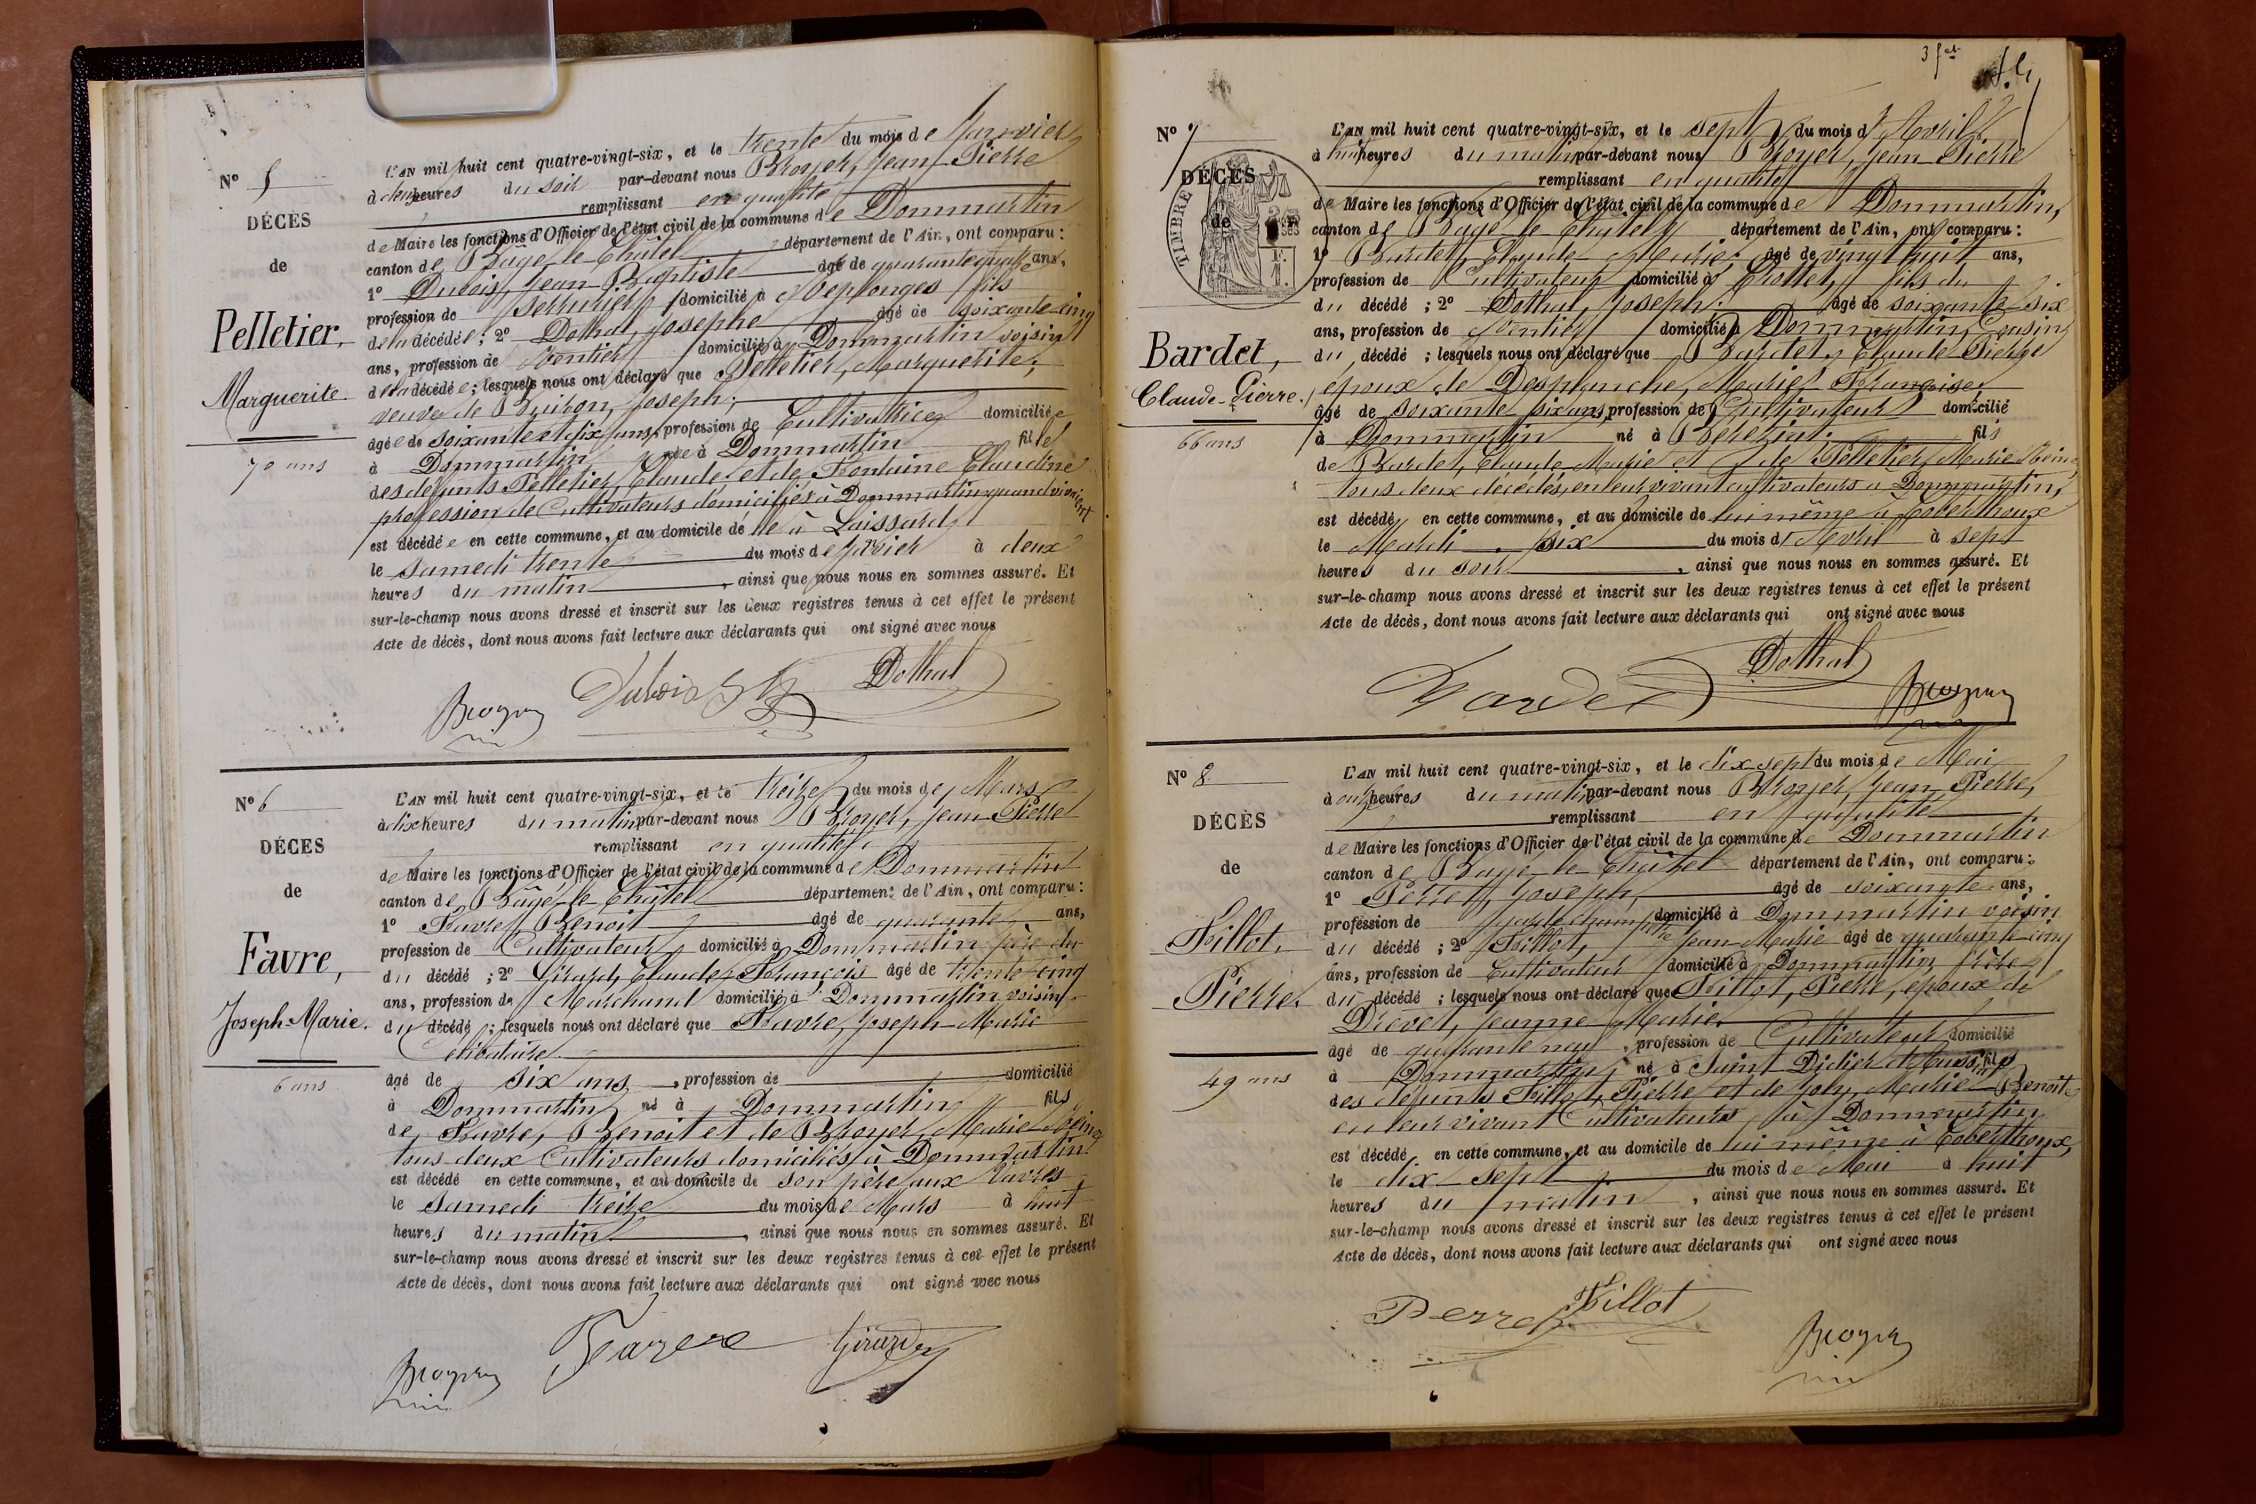 N° 5
DÉCES
de
Pelletier,
Marguerite.
70 ans
L'AN mil huit cent quatre-vingt-six, et le trente du mois de Janvier
à cinq heures du soir par-devant nous Broyer, Jean Pierre
remplissant en qualité
de Maire les fonctions d'Officier de l'état civil de la commune de Dommartin
canton de Bâgé-le-Châtel département de l'Ain, ont comparu:
1° Dubois, Jean Baptiste âgé de quarante quatre ans,
profession de Serrurier domicilié à Replonges fils
de la décédée; 2° Dothal, Joseph âgé de soixante cinq
ans, profession de Rentier domicilié à Dommartin voisin
de la décédée; lesquels nous ont déclaré que Pelletier, Marguerite,
veuve de Buiron, Joseph;
âgée de soixante et dix ans, profession de Cultivatrice domiciliée
à Dommartin née à Dommartin fille
des défunts Pelletier, Claude et de Fontaine Claudine
profession de Cultivateurs domiciliés à Dommartin quand vivaient
est décédée en cette commune, et au domicile de elle à Loissard
le samedi trente du mois de Janvier à deux
heures du matin, ainsi que nous nous en sommes assuré. Et
sur-le-champ nous avons dressé et inscrit sur les deux registres tenus à cet effet le présent
Acte de décès, dont nous avons fait lecture aux déclarants qui ont signé avec nous
Broyer Dubois Dothal
N° 6
DÉCES
de
Favre,
Joseph-Marie.
6 ans
L'AN mil huit cent quatre-vingt-six, et le treize du mois de Mars
à dix heures du matin par-devant nous Broyer, Jean Pierre
remplissant en qualité
de Maire les fonctions d'Officier de l'état civil de la commune de Dommartin
canton de Bâgé-le-Châtel département de l'Ain, ont comparu:
1° Favre, Benoit âgé de quarante ans,
profession de Cultivateur domicilié à Dommartin père du
du décédé; 2° Girard, Claude François âgé de trente cinq
ans, profession de Marchand domicilié à Dommartin voisin
du décédé; lesquels nous ont déclaré que Favre, Joseph-Marie
Célibataire
âgé de six ans, profession de domicilié
à Dommartin né à Dommartin fils
de Favre, Benoit et de Broyer, Marie Reine
tous deux Cultivateurs domiciliés à Dommartin
est décédé en cette commune, et au domicile de son père aux
le samedi treize du mois de Mars à huit
heures du matin, ainsi que nous nous en sommes assuré. Et
sur-le-champ nous avons dressé et inscrit sur les deux registres tenus à cet effet le présent
Acte de décès, dont nous avons fait lecture aux déclarants qui ont signé avec nous
Broyer Girard
N° 7
DÉCES
de
TIMBRE
Bardet,
Claude-Pierre.
66 ans
L'AN mil huit cent quatre-vingt-six, et le sept du mois d'Avril
à huit heures du matin par-devant nous Broyer, Jean Pierre
remplissant en qualité
de Maire les fonctions d'Officier de l'état civil de la commune de Dommartin,
canton de Bâgé-le-Châtel département de l'Ain, ont comparu:
1° Bardet, Claude Marie, âgé de vingt huit ans,
profession de Cultivateur domicilié à Crottet, fils du
du décédé; 2° Dothal, Joseph, âgé de soixante six
ans, profession de Rentier domicilié à Dommartin, Cousin
du décédé; lesquels nous ont déclaré que Bardet, Claude Pierre
époux de Desplanche, Marie Françoise,
âgé de soixante six ans, profession de Cultivateur domicilié
à Dommartin né à Béreziat. fils
de Bardet, Claude Marie et de Pelletier, Marie Reine,
tous deux décédés, en leur vivant cultivateurs à Dommartin,
est décédé en cette commune, et au domicile de lui même à Coberthoux
le Mardi six du mois d'Avril à sept
heures du soir, ainsi que nous nous en sommes assuré. Et
sur-le-champ nous avons dressé et inscrit sur les deux registres tenus à cet effet le présent
Acte de décès, dont nous avons fait lecture aux déclarants qui ont signé avec nous
Bardet Dothal Broyer
N° 8
DÉCÈS
de
Fillot,
Pierre.
49 ans
L'AN mil huit cent quatre-vingt-six, et le dix sept du mois de Mai
à onze heures du matin par-devant nous Broyer, Jean Pierre,
remplissant en qualité
de Maire les fonctions d'Officier de l'état civil de la commune de Dommartin
canton de Bâgé-le-Châtel département de l'Ain, ont comparu:
1° Perret, Joseph, âgé de soixante ans,
profession de garde champêtre domicilié à Dommartin voisin
du décédé; 2° Fillot, Jean Marie âgé de quarante cinq
ans, profession de Cultivateur domicilié à Dommartin, frère
du décédé; lesquels nous ont déclaré que Fillot, Pierre, époux de
Drevet, Jeanne Marie,
âgé de quarante neuf, profession de Cultivateur domicilié
à Dommartin, né à Saint Didier d'Aussiat fils
des défunts Fillot, Pierre et de Joly, Marie-Benoite
en leur vivant Cultivateurs à Dommartin
est décédé en cette commune, et au domicile de lui même à Coberthoux,
le dix sept du mois de Mai à huit
heures du matin, ainsi que nous nous en sommes assuré. Et
sur-le-champ nous avons dressé et inscrit sur les deux registres tenus à cet effet le présent
Acte de décès, dont nous avons fait lecture aux déclarants qui ont signé avec nous
Perret Fillot Broyer